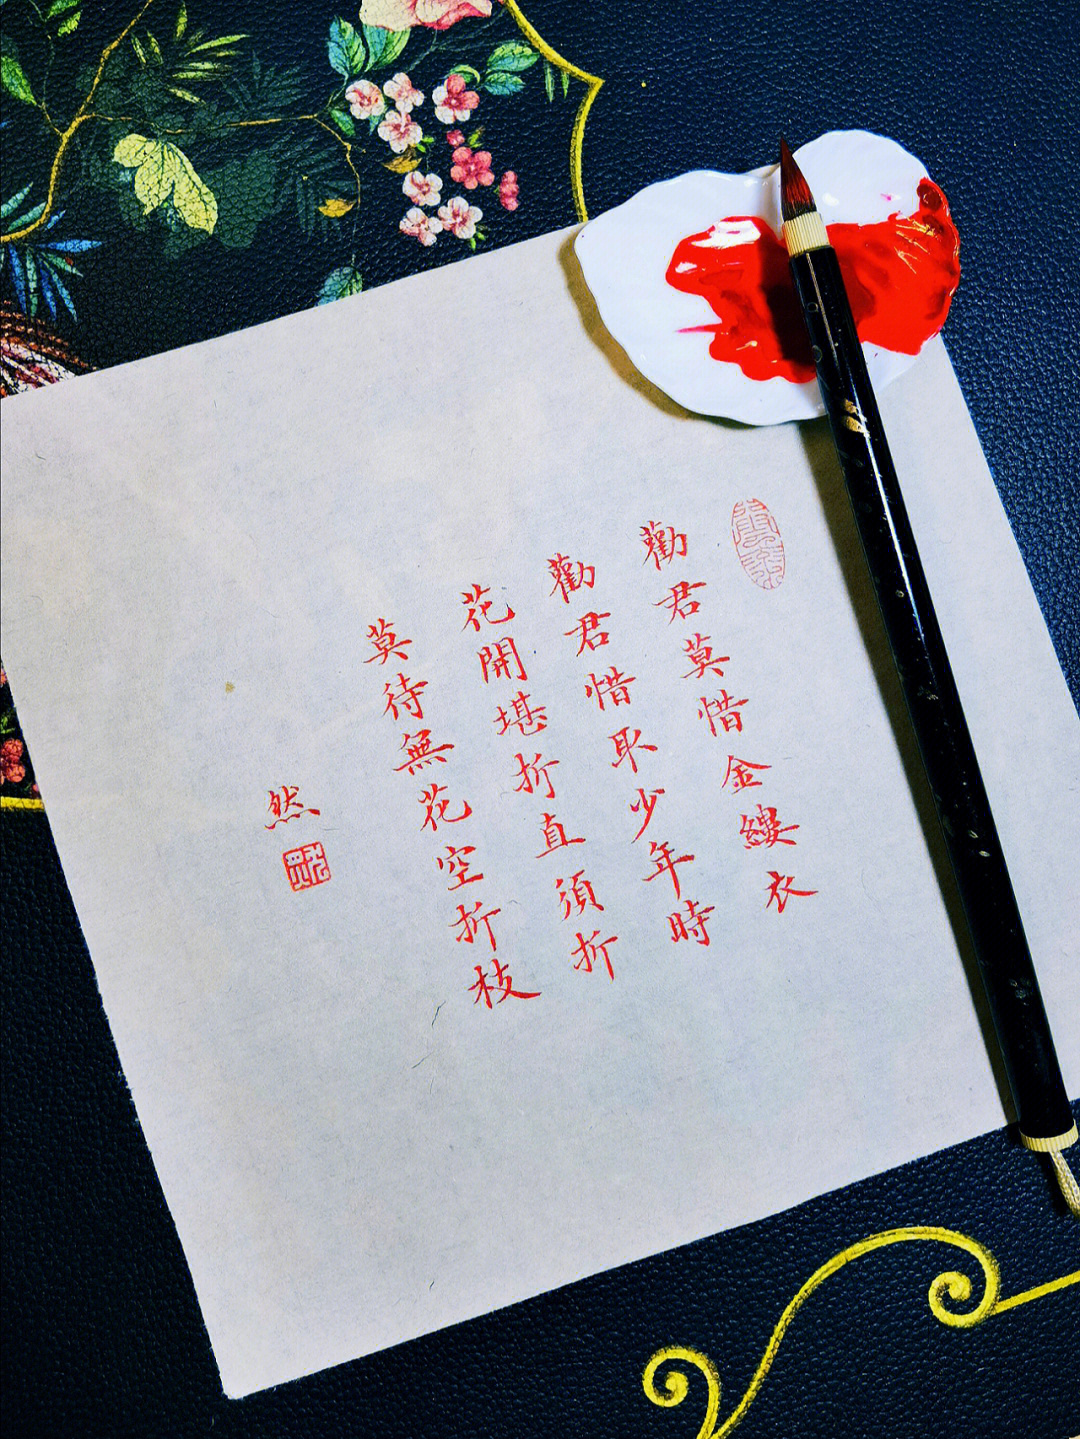 勸君莫惜金縷衣
勸君惜取少年時
花開堪折直須折
莫待無花空折枝
然